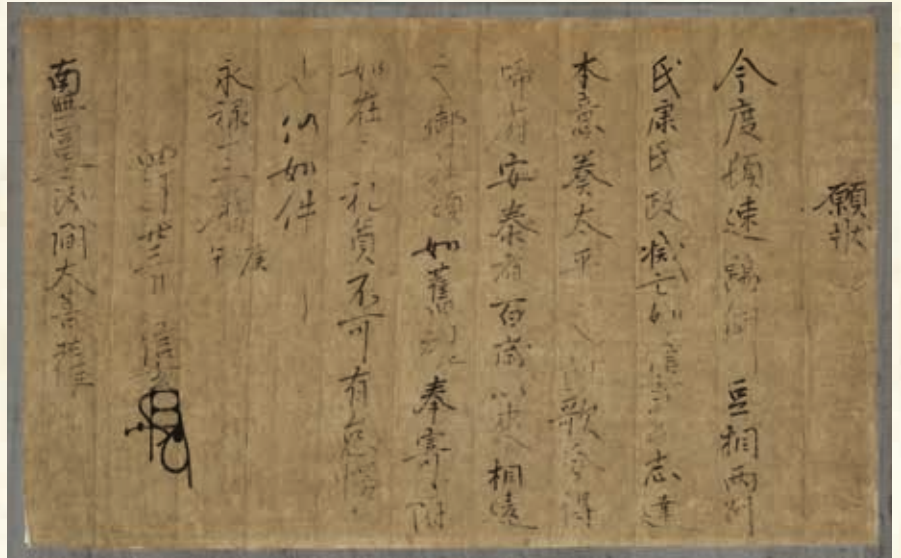 願状
今度頓速 豆相両州
氏康氏政滅亡如信玄之志達
本意奏太平之凱歌令得
帰府安泰者百歳以来相違
之御社領如舊規奉寄附
如在之礼奠不可有怠慢
仍如件
永禄十三年庚午
卯月廿三日 信玄
南無富士浅間大菩薩